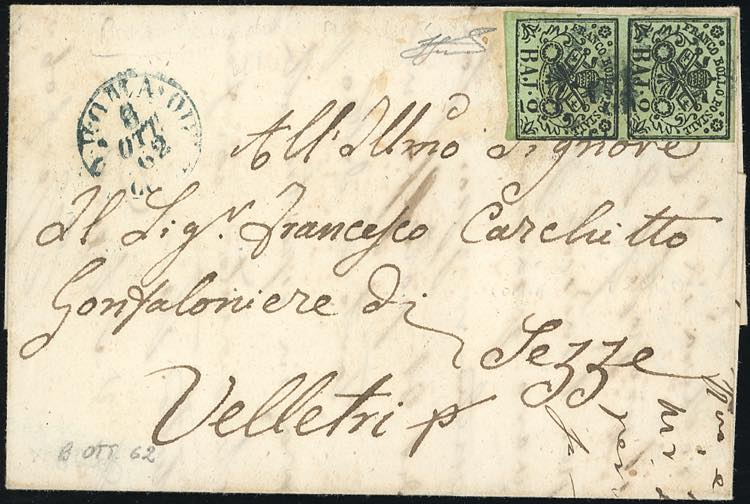 FRANCO BOLLO POSTALE
BAJ. 2
FRANCO BOLLO POSTALE
BAJ. 2
8
OTT
62
All'Illmo Signore
Il Sigr. Francesco Carchitto
Gonfaloniere di
Sezze
Velletri p
8 OTT. 62